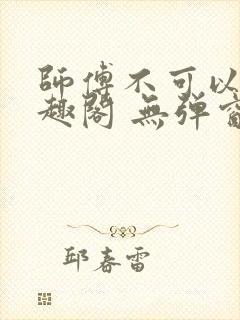 師傅不可以
趣閣 無彈窗
邱春雷